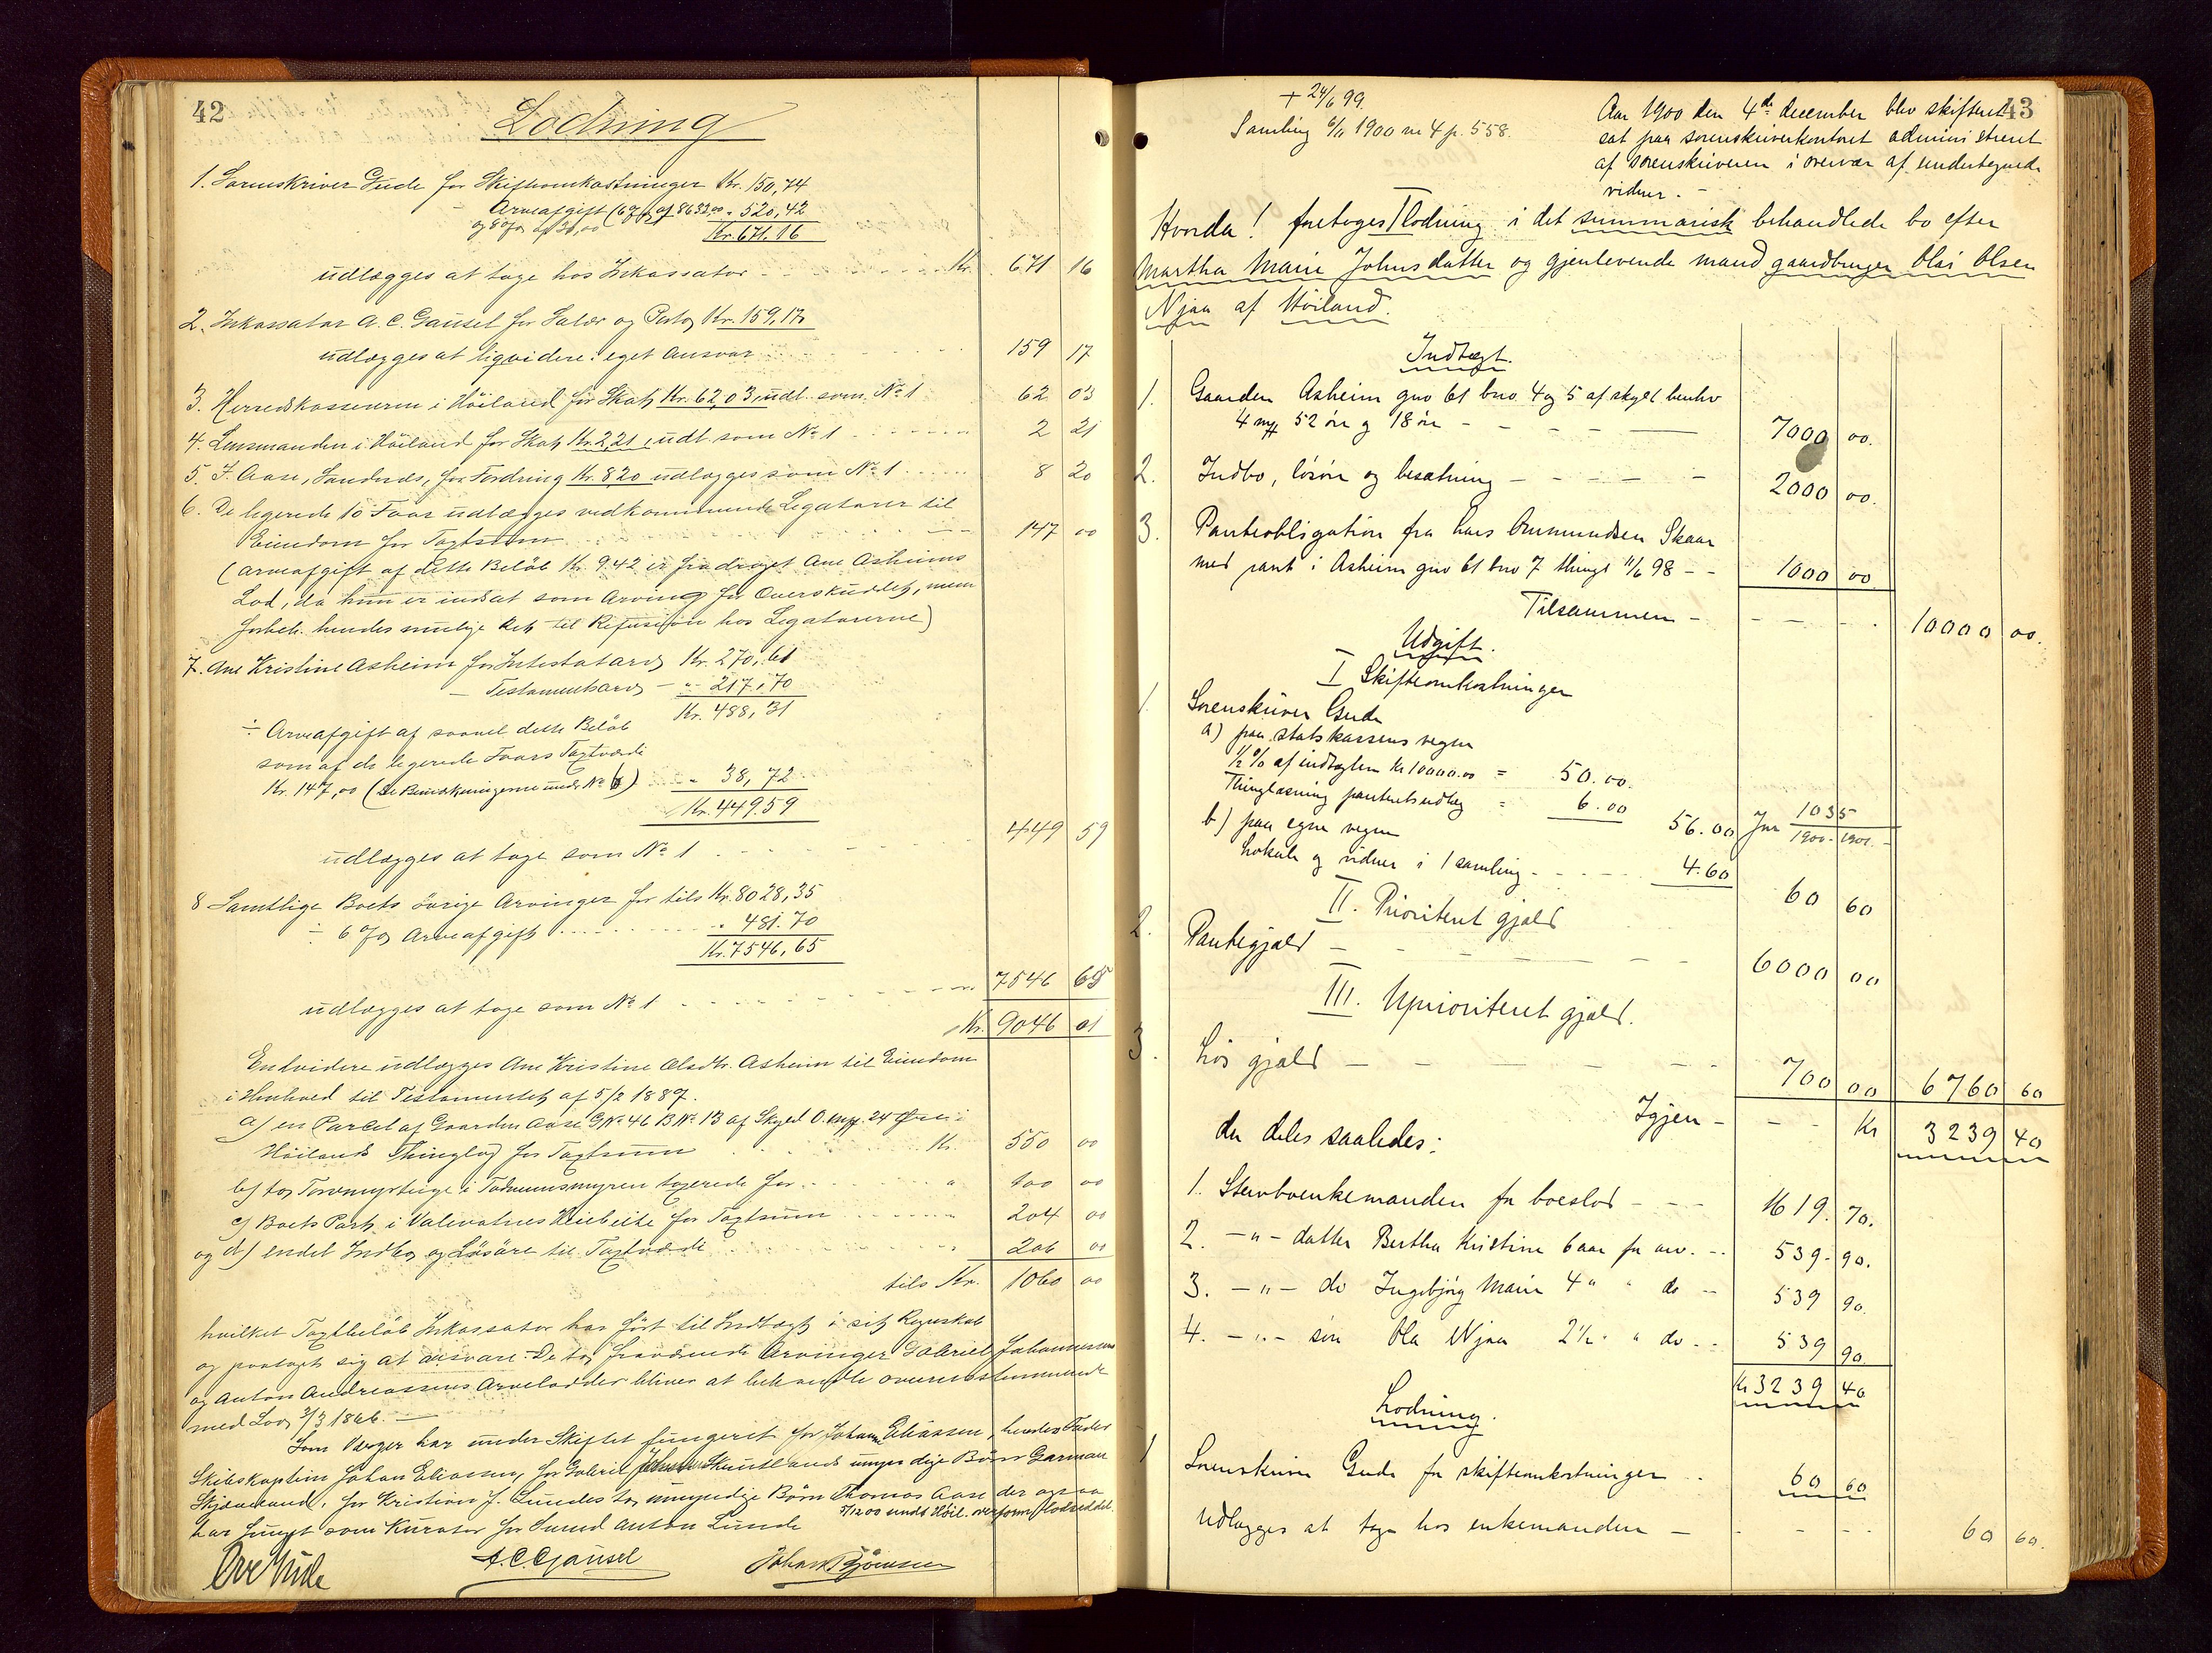 42
Lodning
1. Sorenskriver Gude for Skifteomkostninger Kr. 150,74
Arveafgift (6 % af 8633,00 " 520,42
og 8 % af 30,00
Kr. 671.16
udlægges at tage hos Inkassator - Kr. 671 16
2. Inkassator A. C. Gausel for Salær og Porto Kr. 159,17
udlægges at liqvidere: eget Ansvar 159 17
3. Herredskassereren i Höiland for Skat Kr. 62,03, udl. som No 1 62 03
4. Lensmanden i Höiland for Skat Kr. 2,21, udl. som No 1 2 21
5. F. Aase, Sandnæs, for Fordring Kr. 8,20 udlægges som No 1 8 20
6. De legerede 10 Faar udlægges vedkommende Legatarer til
Eiendom for Taxtsum 147 00
(Arveafgift af dette Belöb Kr. 9.42 er fradraget Ane Asheims
Lod, da hun er indsat som Arving for Overskuddet, men
forbeh. hendes mulige Ret til Refusion hos Legatarerne)
7. Ane Kristine Asheim for Intestatarv Kr. 270,61
— Testamentsarv — " 217,70
Kr. 488,31
÷ Arveafgift af saavel dette Belöb
som af de legerede Faars Taxtværdi
Kr. 147,00 (se Bemærkningerne under No 6) - " 38,72
Kr. 449.59
udlægges at tage som No 1 449 59
8 Samtlige Boets övrige Arvinger for tils Kr. 8028,35
÷ 6 % Arveafgift " 481.70
Kr. 7546,65
udlægges at tage som No 1 7546 65
Kr. 9046 01
Endvidere udlægges Ane Kristine Olsdtr. Asheim til Eiendom
i Henhold til Testamentet af 5/2 1887.
a) en Parcel af Gaarden Aase GNo 46 BNo 13 af Skyld 0. mrk. 24 Öre i
Höilands Thinglag for Taxtsum Kr. 550 00
b) to Torvmyrteige i taxerede for " 100 00
c) Boets Part i for Taxtsum 204 00
og d) endel Indbo og Lösöre til Taxtværdi 206 00
tils Kr. 1060 00
hvilket Taxtbelöb Inkassator har fört til Indtægt i sit Regnskab
og paataget sig at ansvare. De to fraværende Arvinger Gabriel Johannessens
og Anton Andreassens Arvelodder bliver at behandle overensstemmende
med Lov 3/3 1866. —
Som Verger har under Skiftet fungeret for Johanne Eliassen, hendes Fader
Skibskaptein Johan Eliassen, for Gabriel umyndige Börn Garman
for Kristian J. Lundes to umyndige Börn Thomas Aase der ogsaa
har fungt som Kurator for Anton Lunde
Ove Gude A. C. Gausel Johan Björnsen
43
+ 24/6 99.
Samling 6/11 1900 no 4 p. 558.
Aar 1900 den 4de december blev skifteret
sat paa sorenskriverkontoret administreret
af sorenskriveren i overvær af undertegnede
vidner. -
Hvorda! foretoges lodning i det summarisk behandlede bo efter
Martha Marie Johnsdatter og gjenlevende mand gaardbruger Olai Olsen
Njaa af Höiland.
Indtægt.
1. Gaarden Asheim gno 61 bno. 4 og 5 af skyld henhv
4 mrk 52 öre og 18 öre - 7000 00.
2. Indbo, lösöre og besætning - 2000 00.
3. Panteobligation fra Lars Ommundsen Skaar
med pant i Asheim gno 61 bno 7 thingl 11/6 98 - 1000 00
Tilsammen - 10000 00.
Udgift.
I Skifteomkostninger
1. Sorenskriver Gude
a) paa statskassens vegne
1/2 % af indtægten Kr 10000.00 = 50.00.
Thinglæsning panteretsudlæg = 6.00
56.00 Jnr 1035
1900-1901.
b) paa egne vegne
Lokale og vidner i 1 samling - 4.60
60 60
II. Prioriteret gjæld
2. Pantegjæld - 6000 00
III. Uprioriteret gjæld.
3. Lös gjæld - 700 00 6760 60
Igjen - Kr 3239 40
der deles saaledes:
1. Stervboenkemanden for boeslod - 1619. 70.
2. - " - datter Bertha Kristine 6 aar for arv. - 539. 90.
3. - " - do Ingebjörg Marie 4 " " do - 539 90.
4. - " - sön Ola Njaa 2 1/2 " " do - 539 90
Kr 3239 40
Lodning.
1 Sorenskriver Gude for skifteomkostninger 60 60
Udlægges at tage hos enkemanden - 60 60.